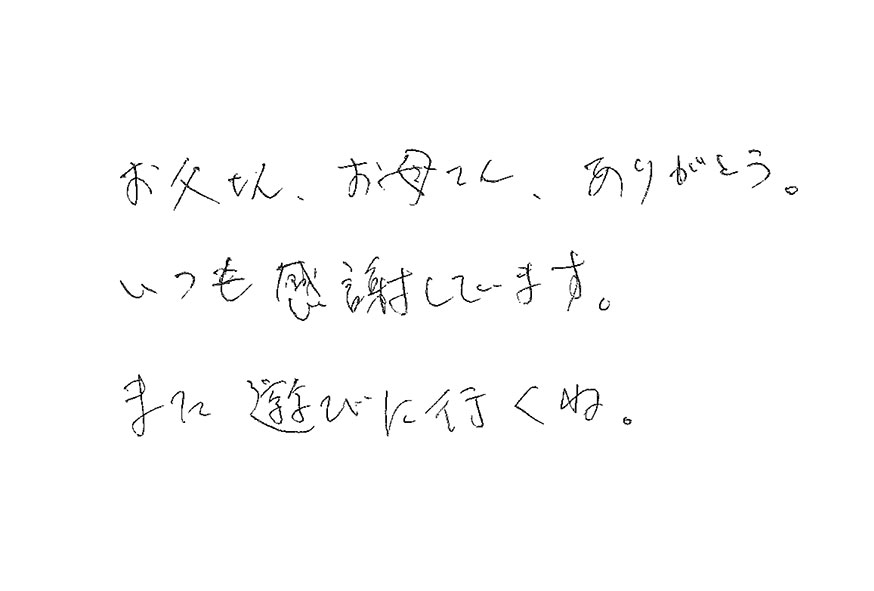 お父さん、お母さん、ありがとう。
いつも感謝しています。
また遊びに行くね。